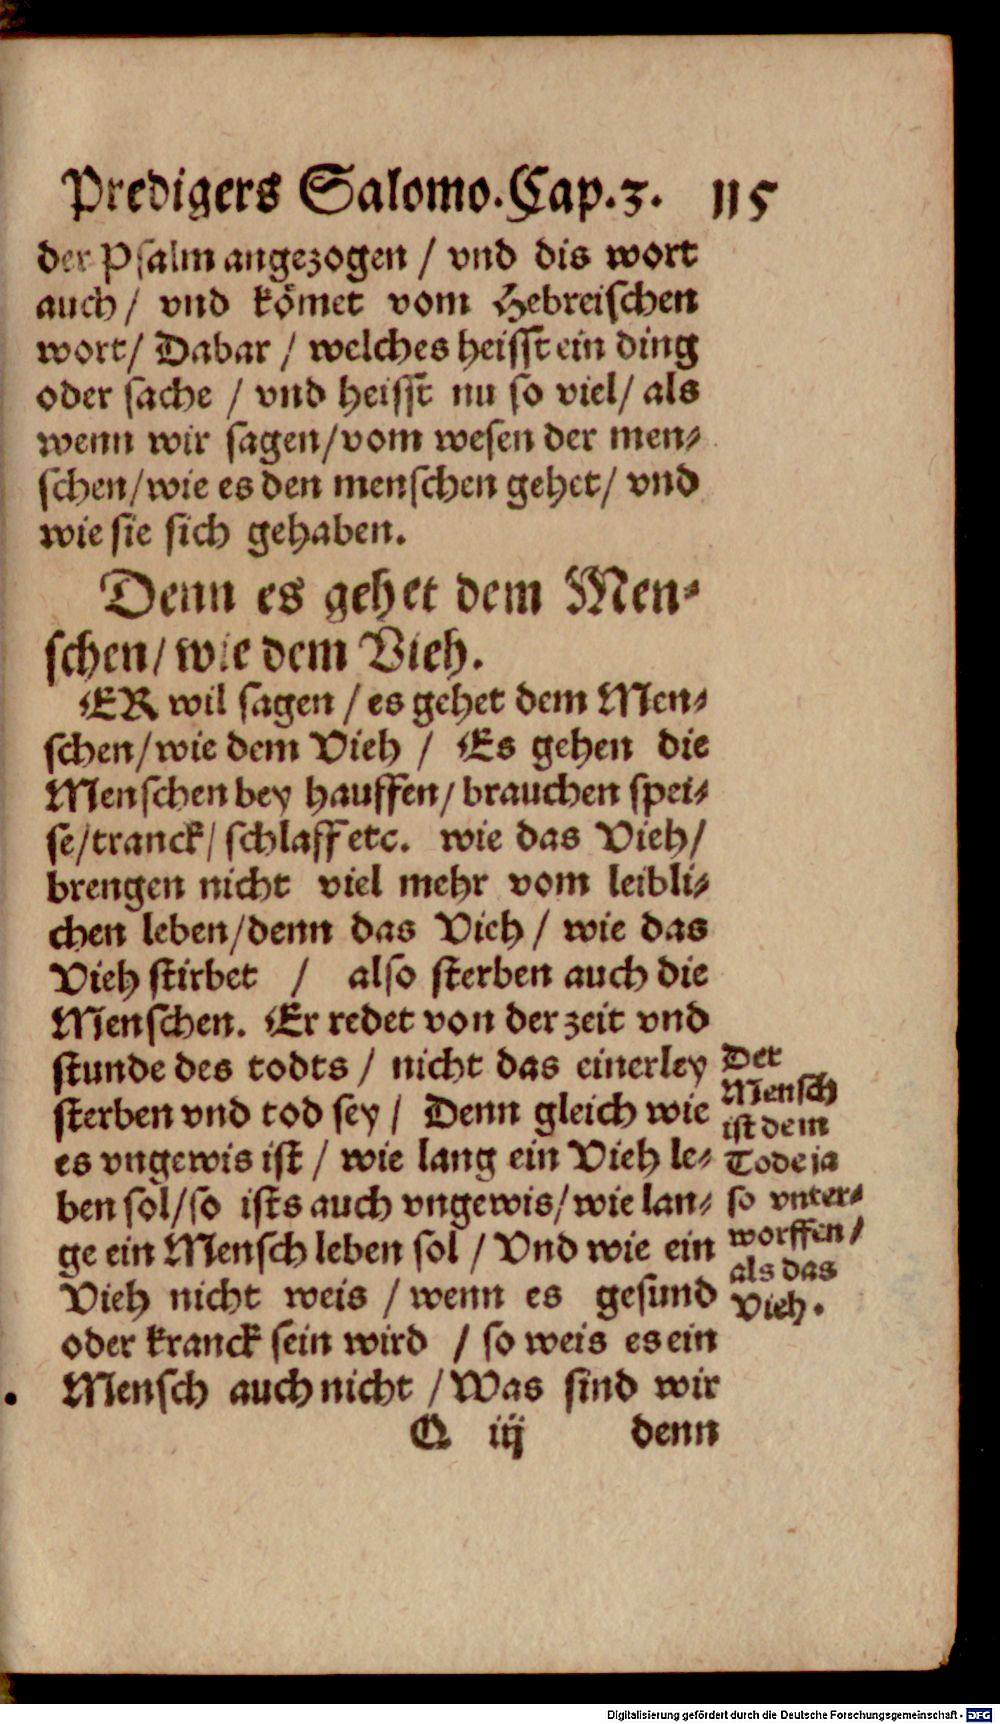 Predigers Salomo. Cap. 3. 115
der Psalm angezogen / vnd dis wort
auch / vnd kömet vom Hebreischen
wort / Dabar / welches heisst ein ding
oder sache / vnd heisst nu so viel / als
wenn wir sagen / vom wesen der men⸗
schen / wie es den menschen gehet / vnd
wie sie sich gehaben.
Denn es gehet dem Men⸗
schen / wie dem Vieh.
ER wil sagen / es gehet dem Men⸗
schen / wie dem Vieh / Es gehen die
Menschen bey hauffen / brauchen spei⸗
se / tranck / schlaff etc. wie das Vieh /
brengen nicht viel mehr vom leibli⸗
chen leben / denn das Vieh / wie das
Vieh stirbet / also sterben auch die
Menschen. Er redet von der zeit vnd
stunde des todts / nicht das einerley
sterben vnd tod sey / Denn gleich wie
es vngewis ist / wie lang ein Vieh le⸗
ben sol / so ists auch vngewis / wie lan⸗
ge ein Mensch leben sol / Vnd wie ein
Vieh nicht weis / wenn es gesund
oder kranck sein wird / so weis es ein
Mensch auch nicht / Was sind wir
Q iij denn
Der
Mensch
ist dem
Tode ja
so vnter⸗
worffen /
als das
Vieh.
Digitalisierung gefördert durch die Deutsche Forschungsgemeinschaft - DFG